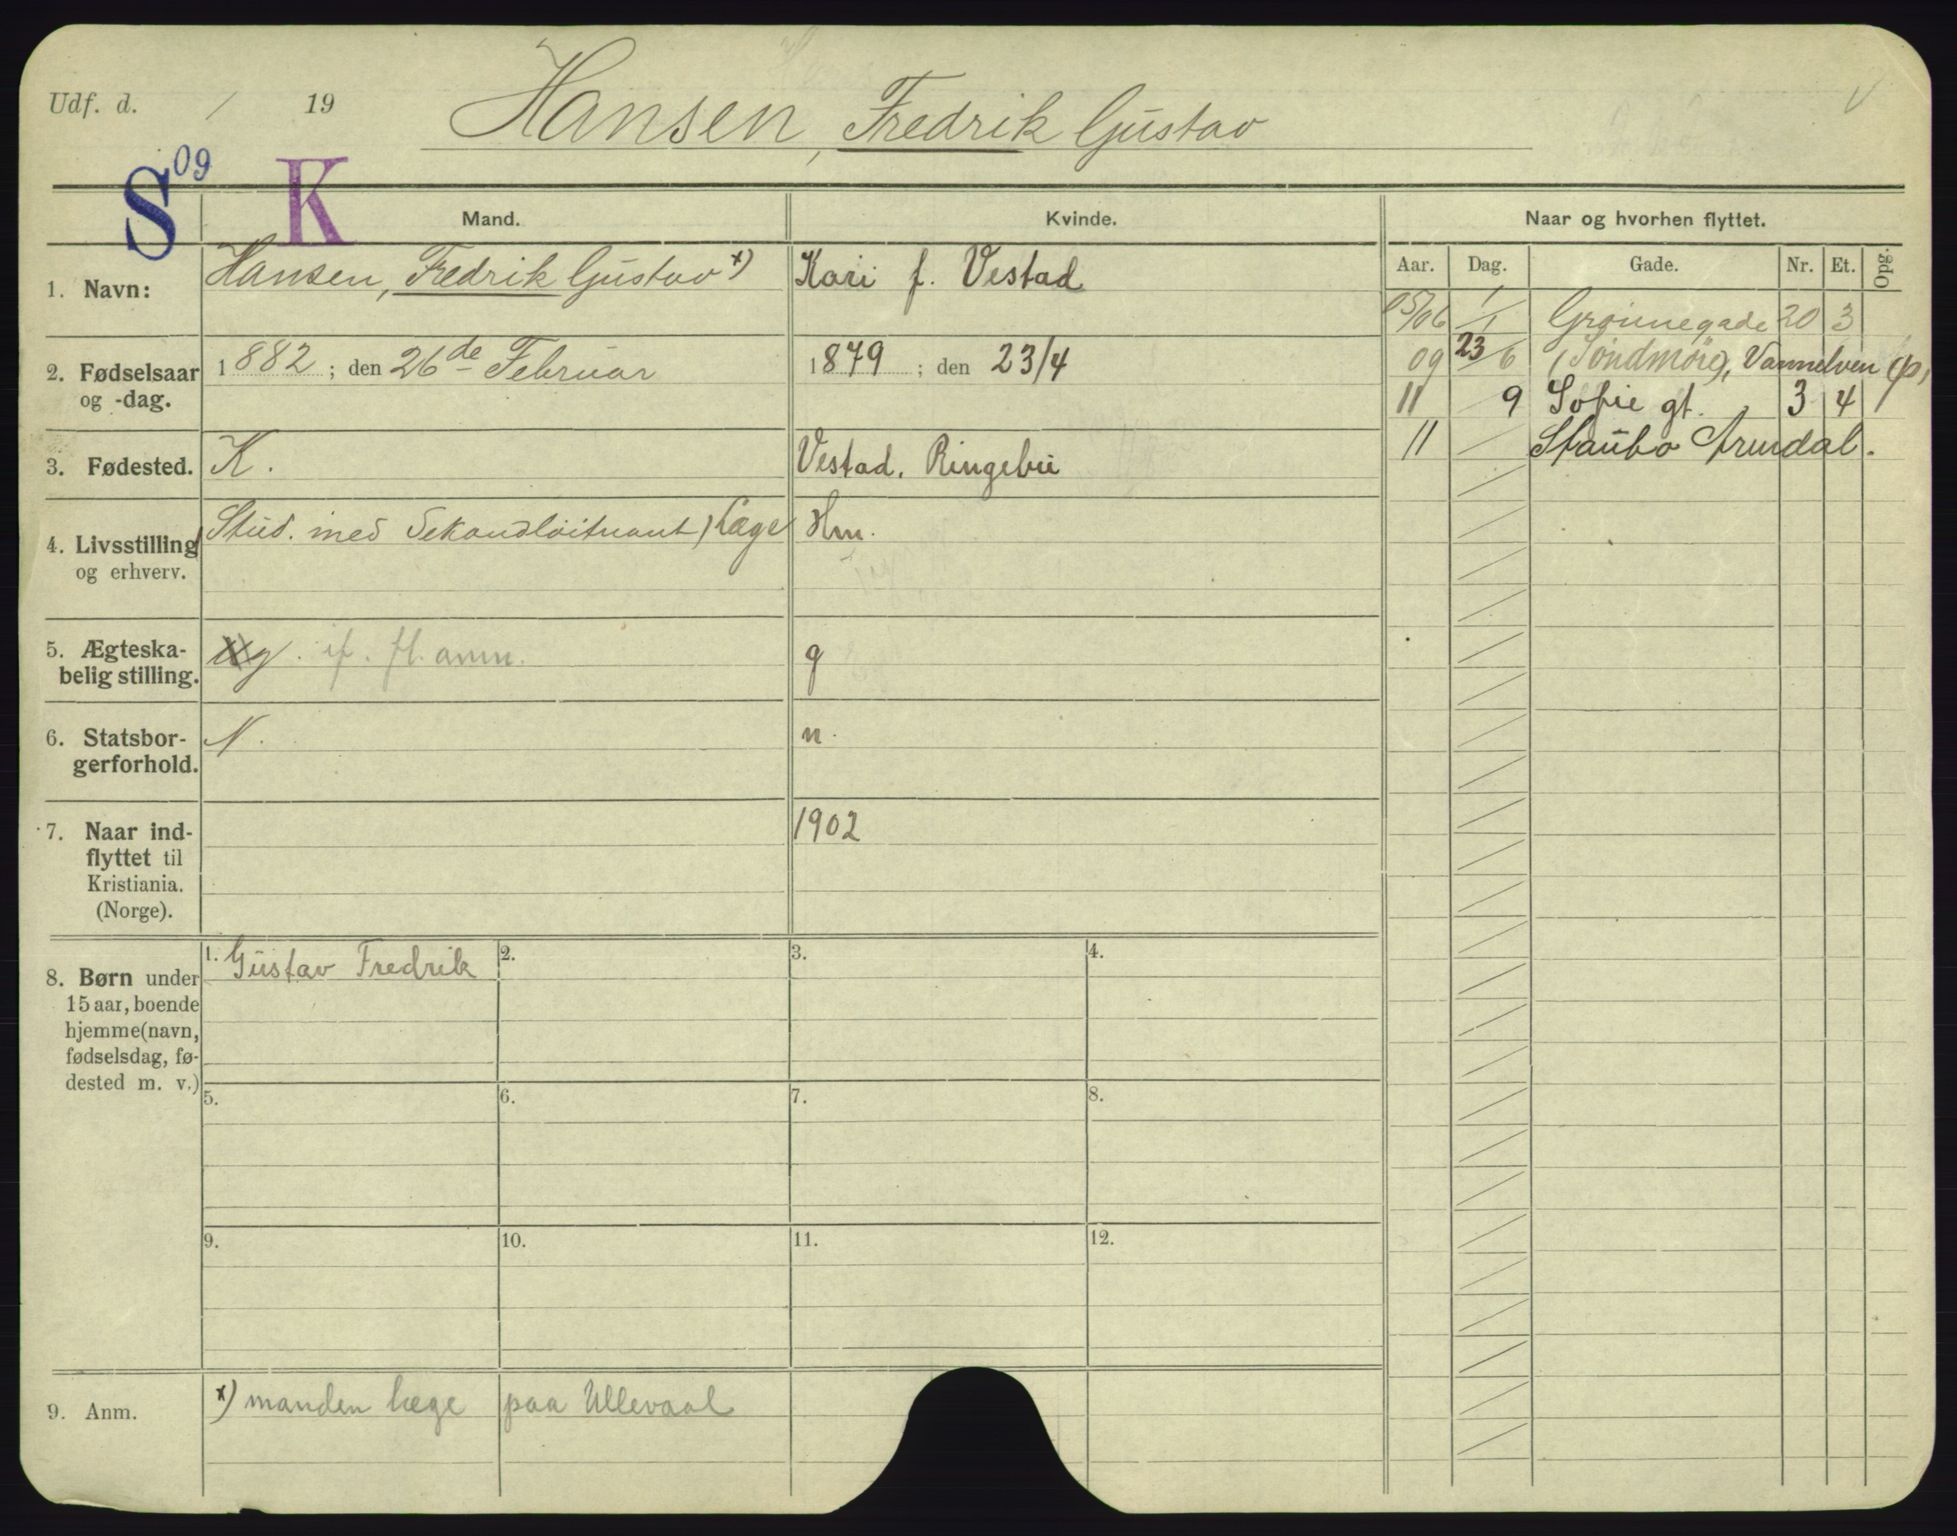 Udf. d. / 19
Hansen, Fredrik Gustav
S 09 K
Mand. Kvinde. Naar og hvorhen flyttet.
Aar. Dag. Gade. Nr. Et. Opg.
1. Navn: Hansen, Fredrik Gustav x) Kari f. Vestad
05/06 1/1 Grønnegade 20 3
09 23/6 (Söndmöre), Vannelven (p)
11 9 Sofie gt. 3 4
11 Staubo Arendal.
2. Fødselsaar og -dag. 1882; den 26de Februar 1879; den 23/4
3. Fødested. K. Vestad. Ringebu
4. Livsstilling og erhverv. Stud. med Sekondløitnant) Læge Hm.
5. Ægteska-
belig stilling. g. fl. anm. g
6. Statsbor-
gerforhold. N. n.
7. Naar ind-
flyttet til
Kristiania.
(Norge). 1902
8. Børn under
15 aar, boende
hjemme (navn,
fødselsdag, fø-
dested m. v.)
1. Gustav Fredrik 2. 3. 4.
5. 6. 7. 8.
9. 10. 11. 12.
9. Anm. x) manden læge paa Ullevaal